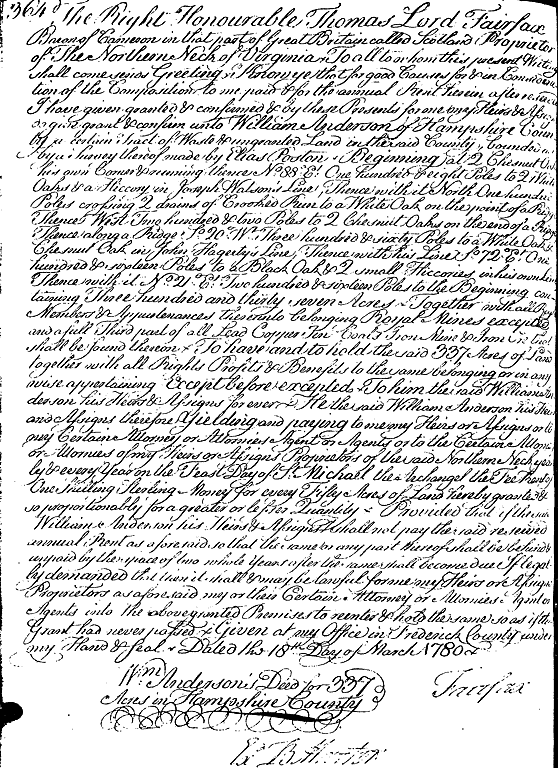 364
The Right Honourable Thomas Lord Fairfax
Baron of Cameron in that part of Great Britain called Scotland & Proprietor
of The Northern Neck of Virginia To all to whom this present Writing
shall come sends Greeting Know ye that for good Causes for & in Considera
tion of the Composition to me paid & for the annual Rent herein after
I have given granted & confirmed & by these Presents for me my Heirs &
do give grant & confirm unto William Anderson of Hampshire County
a certain Tract of Waste & ungranted Land in the said County bounded
by a Survey thereof made by Elias Poston Beginning at 2 Chesnut
his own Corner & running thence No. 88 Et. One hundred & eight Poles to 2 White
Oaks & a Hiccory in Joseph Watson's Line Thence with it North One hundred
Poles crossing 2 drains of Crooked Run to a White Oak on the point of a
Thence West Two hundred & two Poles to 2 Chesnut Oaks on the end of a
Thence along a Ridge So. 20 Wt. Three hundred & sixty Poles to a White Oak &
Chesnut Oak in John Hagerty's Line Thence with his Line So. 72 Et. One
hundred & sixteen Poles to a Black Oak & 2 small Hiccories in his own line
Thence with it No. 21 Et. Two hundred & sixteen Poles to the Beginning con
taining Three hundred and thirty seven Acres Together with all
Members & Appurtenances thereunto belonging Royal Mines excepted
and a full Third part of all Lead Copper Tin Coals Iron Mine & Iron
shall be found thereon To have and to hold the said 337 Acres of Land
together with all Rights Profits & Benefits to the same belonging or in any
wise appertaining Except before excepted To him the said William An
derson his Heirs & Assigns for ever He the said William Anderson his Heirs
and Assigns therefore Yielding and paying to me my Heirs or Assigns or to
my Certain Attorney or Attornies Agent or Agents or to the Certain Attorney
or Attornies of my Heirs or Assigns Proprietors of the said Northern Neck year
ly & every Year on the Feast Day of St. Michael the Archangel the Fee Rent of
One Shilling Sterling Money for every Fifty Acres of Land hereby granted &
so proportionably for a greater or lesser Quantity Provided that if the said
William Anderson his Heirs & Assigns shall not pay the said reserved
annual Rent as aforesaid so that the same or any part thereof shall be behind &
unpaid by the space of two whole Years after the same shall become due if legal
ly demanded that then it shall & may be lawful for me my Heirs or Assigns
Proprietors as aforesaid my or their Certain Attorney or Attornies Agent or
Agents into the above granted Premises to reenter & hold the same so as if this
Grant had never passed Given at my Office in Frederick County under
my Hand & Seal Dated the 18th Day of March 1780
Wm Anderson's Deed for 337
Acres in Hampshire County
Fairfax